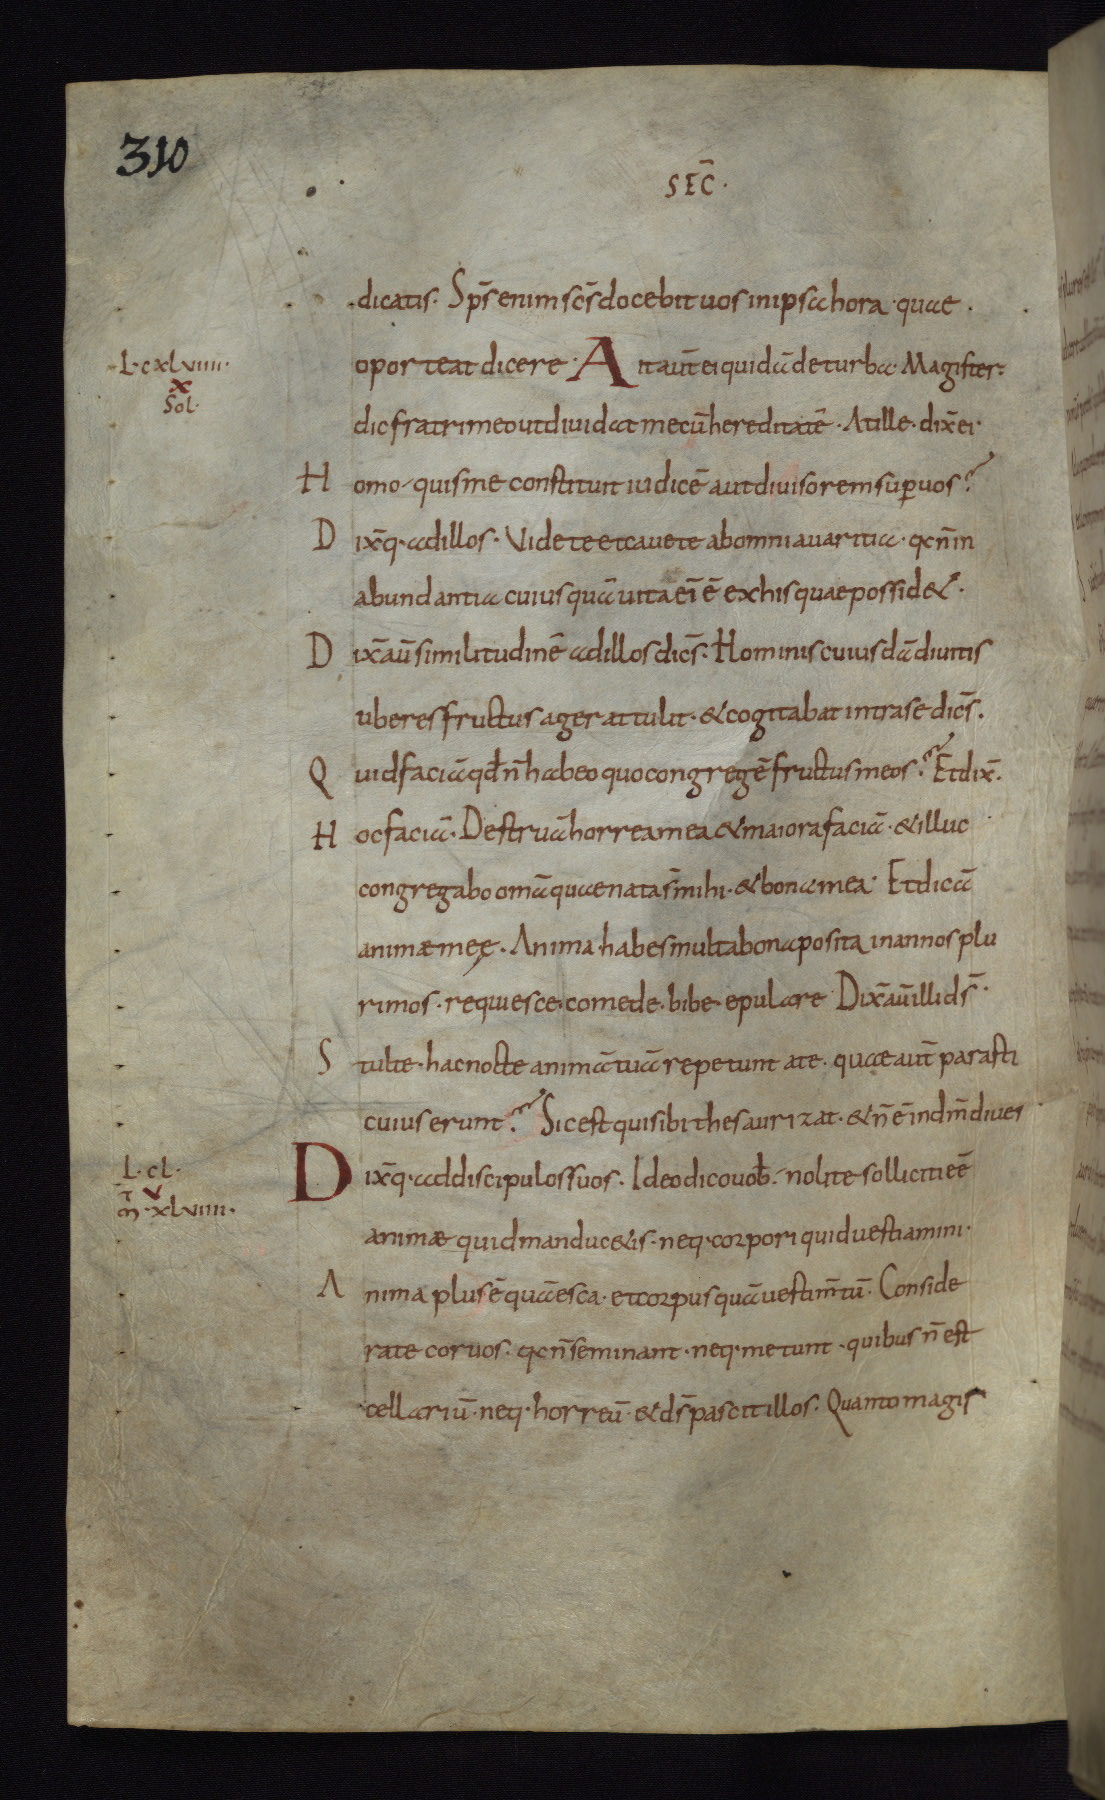 310
SEC̄·
dicatis· Sp̄s enim sc̄s docebit uos in ipsa hora · quae ·
L·cxlviiii·
oporteat dicere · Ait aut̄ ei quidā de turba · Magister·
x
Sol·
dic fratri meo ut diuidat mecū hereditatē · At ille · dix̄ ei·
Homo quis me constituit iudicē aut diuisorem sup̄ uos?
Dix̄q· ad illos · Videte et cauete ab omni auaritia · q̄ n̄ in
abundantia cuiusquā uita ei̅ ē ex his quae possidet ·
Dix̄ aū similitudinē ad illos dic̄s· Hominis cuiusdā diuitis
uberes fructus ager attulit · & cogitabat intra se dic̄s·
Quid faciā qd̄ n̄ habeo quo congregē fructus meos? Et dix̄·
Hoc faciā· Destruā horrea mea & maiora faciā · & illuc
congregabo om̄a quae nata s̄ mihi · & bona mea· Et dicā
animae meę · Anima habes multa bona posita in annos plu
rimos · requiesce · comede · bibe epulare Dix̄ aū illi ds̄·
Stulte · hac nocte animā tuā repetunt a te · quae aut̄ parasti
cuius erunt? Sic est qui sibi thesaurizat · & n̄ ē in dm̄ diues
L·cl·
Dix̄q· ad discipulos suos · Ideo dico uob̄· nolite solliciti eē
v
m̄·xlviiii·
animae quid manducetis · neq· corpori quid uestiamini·
Anima plus ē quā esca · et corpus quā uestim̄tū· Conside
rate coruos · q̄ n̄ seminant · neq· metunt · quibus n̄ est
cellariū· neq· horreū· & ds̄ pascit illos· Quanto magis